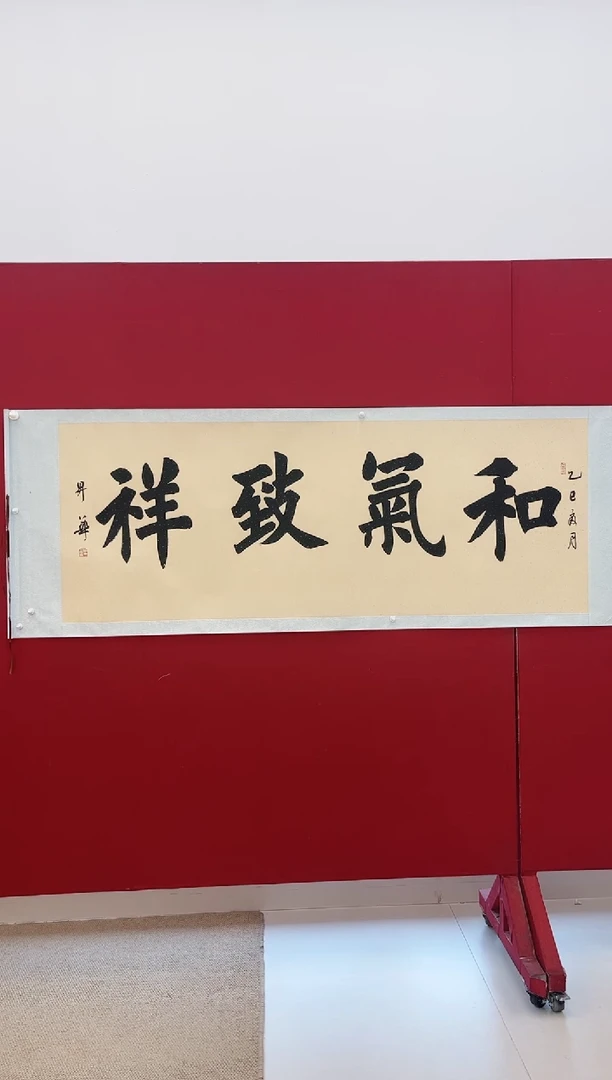 和氣致祥
乙巳夏月
昇華